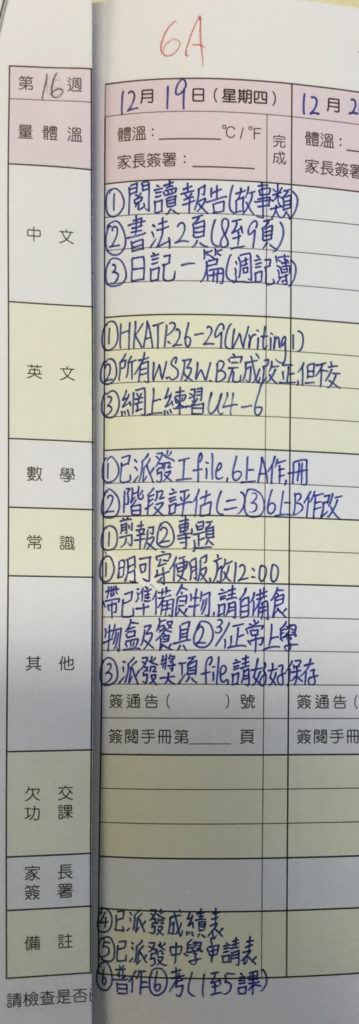 6A
第16週
12月19日(星期四)
12月2
量體溫
體溫：______℃/℉
家長簽署：______
完成
體溫：
家長簽
中文
①閱讀報告(故事類)
②書法2頁(8至9頁)
③日記一篇(週記簿)
英文
①HKATP.26-29(Writing1)
②所有WS及WB完成改正,但不交
③網上練習U4-6
數學
①已派發工file,6上A作,冊
②階段評估(二)③6上B作改
常識
①剪報②專題
其他
①明可穿便服,放12:00
帶已準備食物,請自備食
物盒及餐具②3/1正常上學
③派發獎項file,請好好保存
簽通告(　　)號
簽通告(
簽閱手冊第____頁
簽閱手冊
欠交功課
家長簽署
備註
④已派發成績表
⑤已派發中學申請表
⑥普作⑥考(1至5課)
請檢查是否已